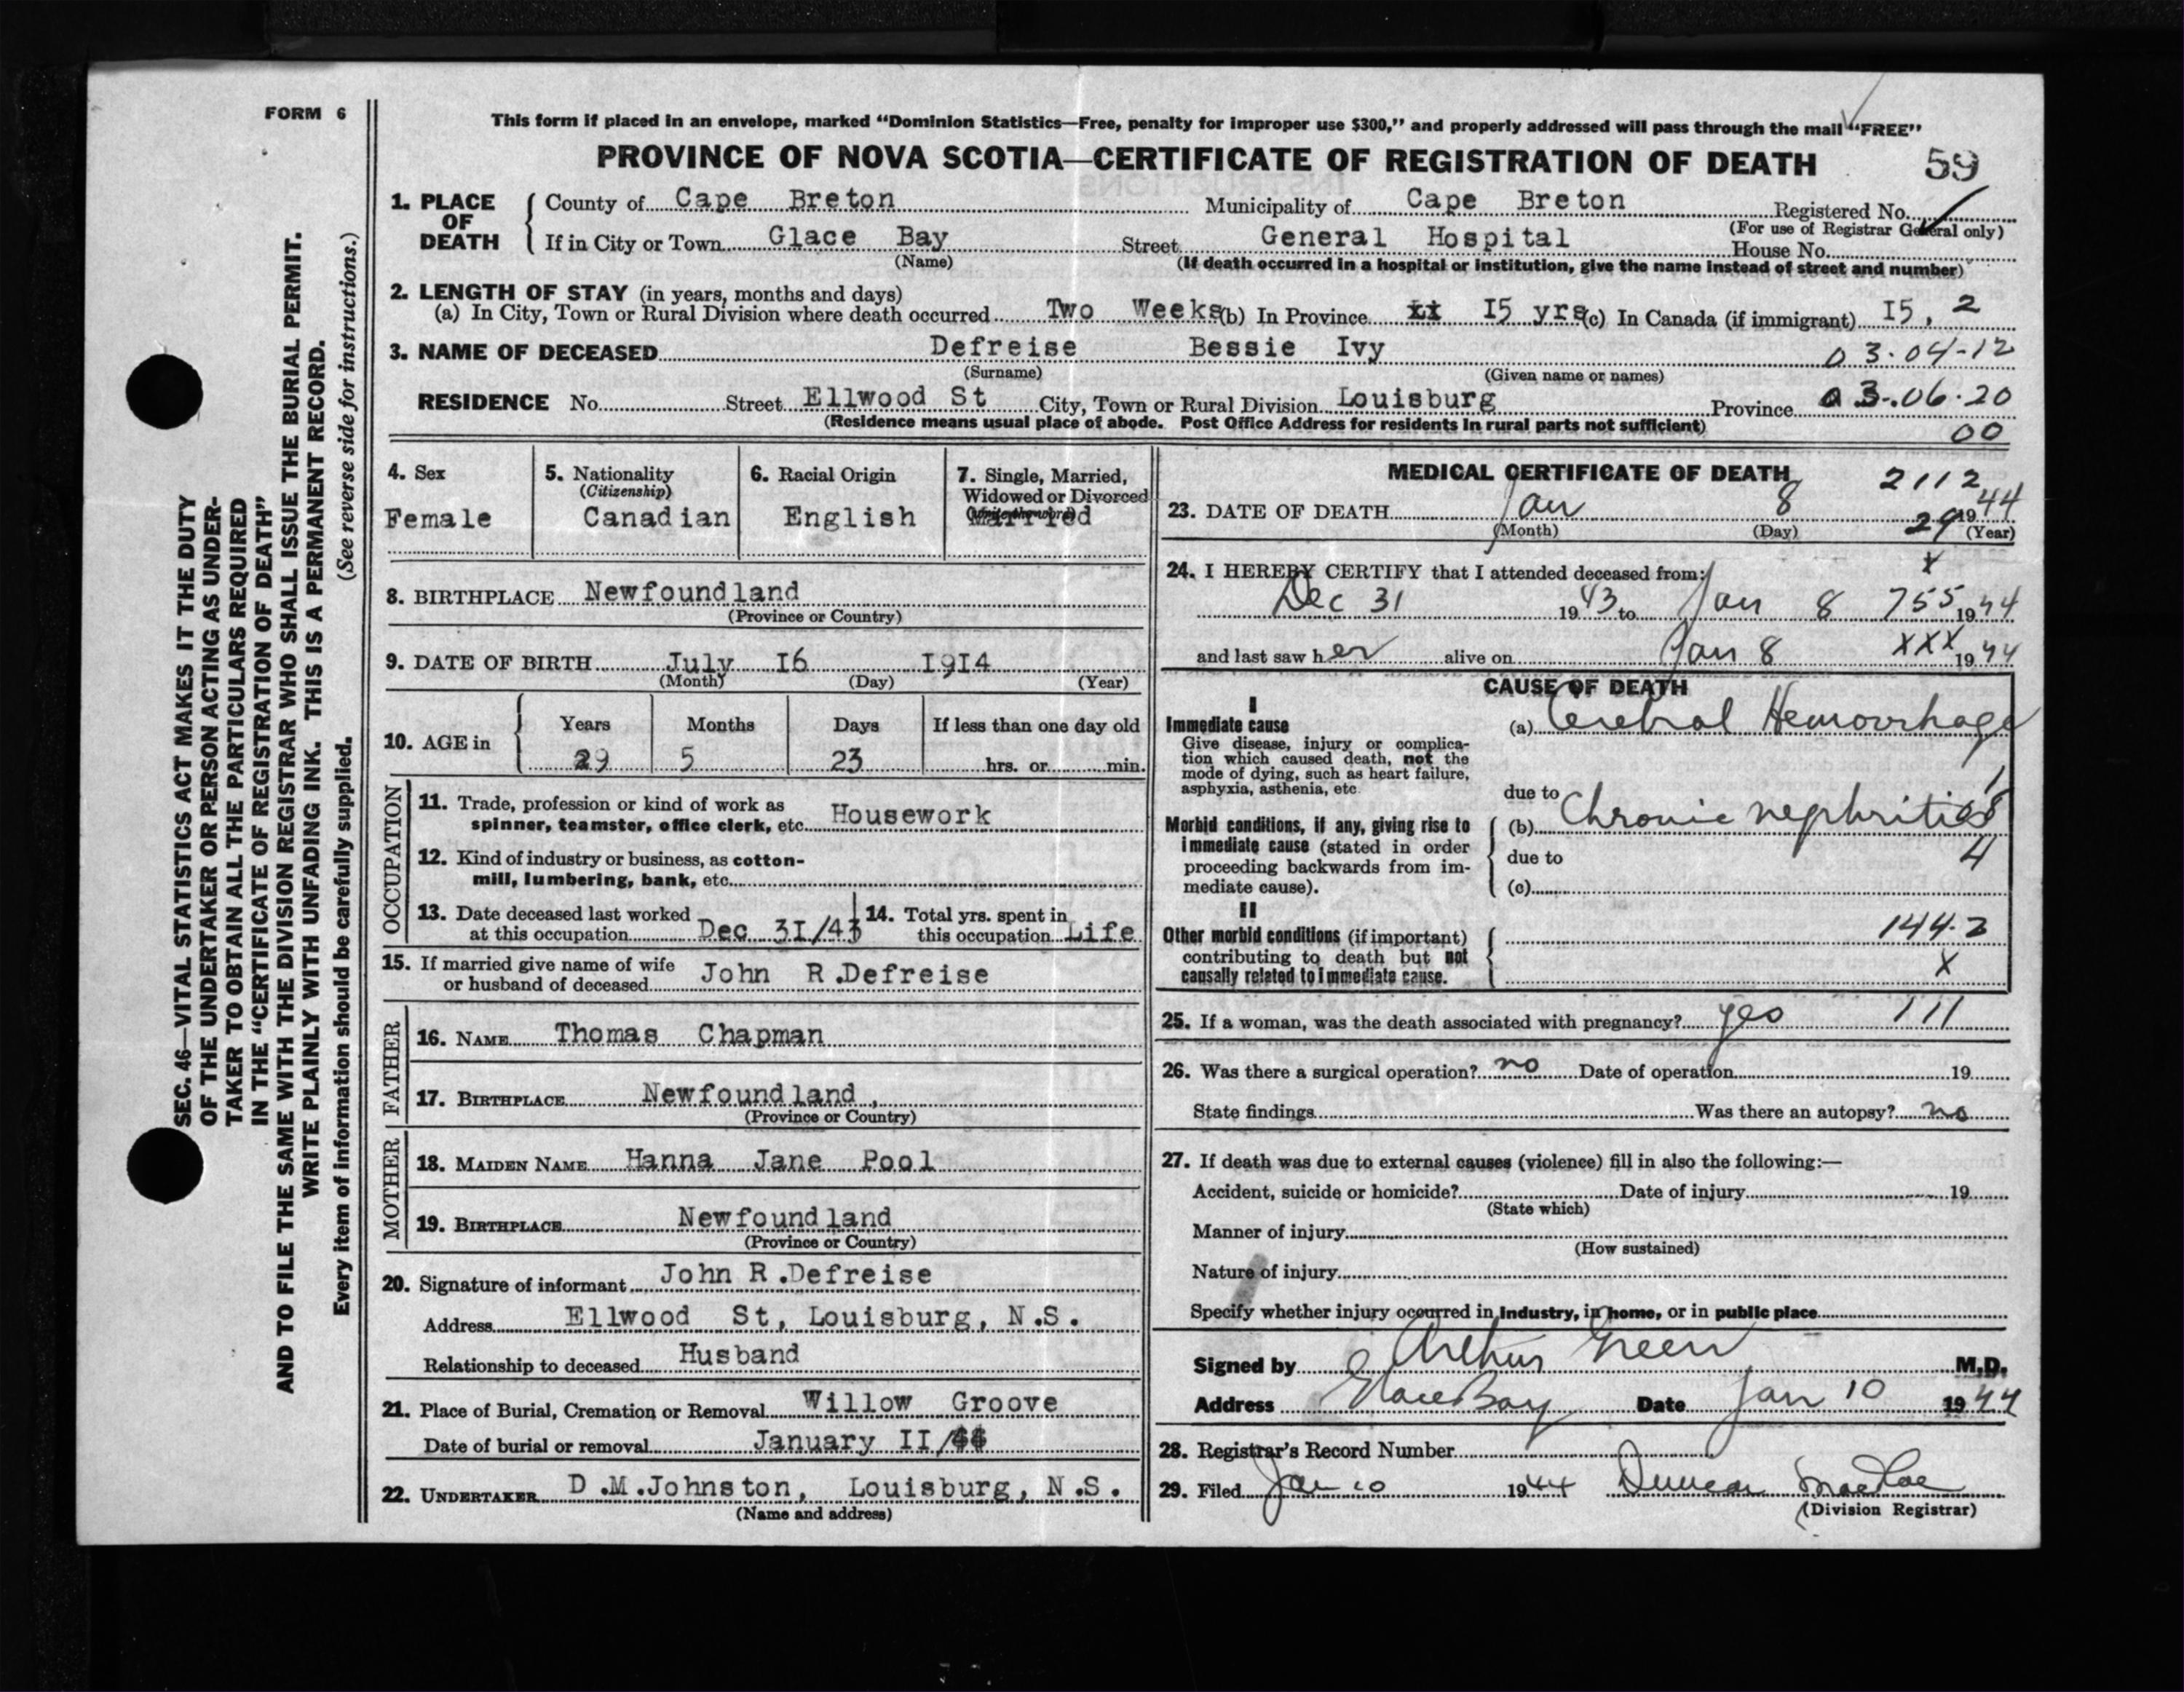 FORM 6
This form if placed in an envelope, marked “Dominion Statistics—Free, penalty for improper use $300,” and properly addressed will pass through the mail “FREE”
PROVINCE OF NOVA SCOTIA—CERTIFICATE OF REGISTRATION OF DEATH 59
1. PLACE OF DEATH
County of Cape Breton Municipality of Cape Breton Registered No.
(For use of Registrar General only)
If in City or Town Glace Bay Street General Hospital House No.
(Name) (If death occurred in a hospital or institution, give the name instead of street and number)
2. LENGTH OF STAY (in years, months and days)
(a) In City, Town or Rural Division where death occurred Two Weeks (b) In Province 15 yrs (c) In Canada (if immigrant) I5, 2
3. NAME OF DECEASED Defreise Bessie Ivy 03.04-12
(Surname) (Given name or names)
RESIDENCE No. Street Ellwood St City, Town or Rural Division Louisburg Province 03-.06.20
(Residence means usual place of abode. Post Office Address for residents in rural parts not sufficient) 00
SEC. 46—VITAL STATISTICS ACT MAKES IT THE DUTY
OF THE UNDERTAKER OR PERSON ACTING AS UNDER-
TAKER TO OBTAIN ALL THE PARTICULARS REQUIRED
IN THE “CERTIFICATE OF REGISTRATION OF DEATH”
AND TO FILE THE SAME WITH THE DIVISION REGISTRAR WHO SHALL ISSUE THE BURIAL PERMIT.
WRITE PLAINLY WITH UNFADING INK. THIS IS A PERMANENT RECORD.
Every item of information should be carefully supplied. (See reverse side for instructions.)
4. Sex
Female
5. Nationality
(Citizenship)
Canadian
6. Racial Origin
English
7. Single, Married,
Widowed or Divorced
Married
8. BIRTHPLACE Newfoundland
(Province or Country)
9. DATE OF BIRTH July I6 I9I4
(Month) (Day) (Year)
10. AGE in
Years Months Days If less than one day old
29 5 23 hrs. or min.
OCCUPATION
11. Trade, profession or kind of work as
spinner, teamster, office clerk, etc. Housework
12. Kind of industry or business, as cotton-
mill, lumbering, bank, etc.
13. Date deceased last worked
at this occupation Dec 3I/43
14. Total yrs. spent in
this occupation Life
15. If married give name of wife
or husband of deceased John R.Defreise
FATHER
16. NAME Thomas Chapman
17. BIRTHPLACE Newfoundland,
(Province or Country)
MOTHER
18. MAIDEN NAME Hanna Jane Pool
19. BIRTHPLACE Newfoundland
(Province or Country)
20. Signature of informant John R.Defreise
Address Ellwood St, Louisburg, N.S.
Relationship to deceased Husband
21. Place of Burial, Cremation or Removal Willow Groove
Date of burial or removal January II/44
22. UNDERTAKER D.M.Johnston, Louisburg, N.S.
(Name and address)
MEDICAL CERTIFICATE OF DEATH 2112
23. DATE OF DEATH Jan 8 1944
29
(Month) (Day) (Year)
24. I HEREBY CERTIFY that I attended deceased from: x
Dec 31 1943 to Jan 8 755 1944
and last saw her alive on Jan 8 XXX 1944
CAUSE OF DEATH
I
Immediate cause
Give disease, injury or complica-
tion which caused death, not the
mode of dying, such as heart failure,
asphyxia, asthenia, etc.
(a) Cerebral Hemorrhage
due to
Morbid conditions, if any, giving rise to
immediate cause (stated in order
proceeding backwards from im-
mediate cause).
(b) Chronic nephritis
due to 4
(c)
II
Other morbid conditions (if important)
contributing to death but not
causally related to immediate cause.
144.2
X
25. If a woman, was the death associated with pregnancy? yes 111
26. Was there a surgical operation? no Date of operation 19
State findings Was there an autopsy? no
27. If death was due to external causes (violence) fill in also the following:—
Accident, suicide or homicide? Date of injury 19
(State which)
Manner of injury
(How sustained)
Nature of injury
Specify whether injury occurred in industry, in home, or in public place
Signed by Arthur Green M.D.
Address Glace Bay Date Jan 10 1944
28. Registrar's Record Number
29. Filed Jan 10 1944 Duncan MacRae
(Division Registrar)